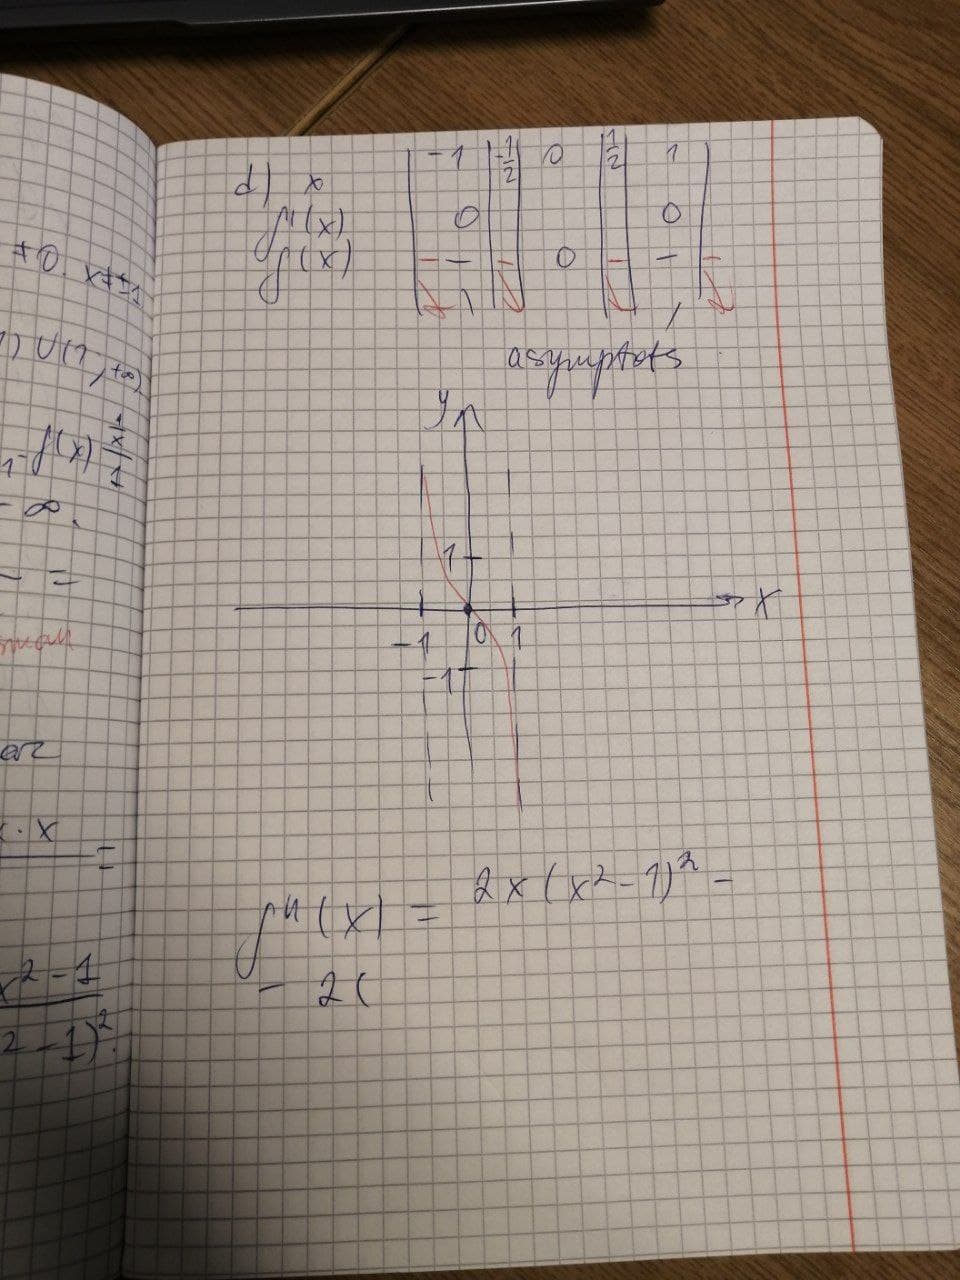 +0. x≠±1
) U(1, +∞)
- f(x) x/1
- ∞.
- =
ar
x · x =
x² - 1
2 - 1)².
d) x | -1 | -1/2 | 0 | 1/2 | 1 |
f'(x) 0 0
f(x) - - - 0 - - -
asymptots
y
1
x
-1 0 1
-1
f"(x) = 2x(x² - 1)² -
- 2(